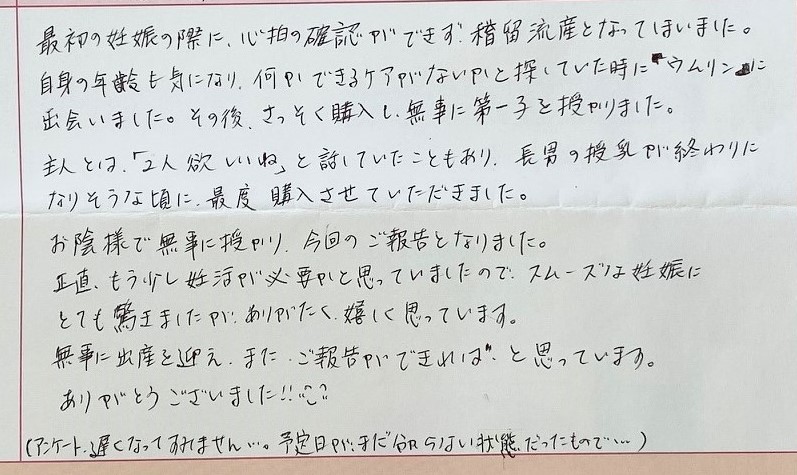 最初の妊娠の際に、心拍の確認ができず、稽留流産となってしまいました。
自身の年齢も気になり、何かできるケアがないかと探していた時に『ウムリン』に
出会いました。その後、さっそく購入し、無事に第一子を授かりました。
主人とは、「2人欲しいね」と話していたこともあり、長男の授乳が終わりに
なりそうな頃に、最度 購入させていただきました。
お陰様で無事に授かり、今回のご報告となりました。
正直、もう少し妊活が必要かと思っていましたので、スムーズな妊娠に
とても驚きましたが、ありがたく、嬉しく思っています。
無事に出産を迎え、また、ご報告ができれば、と思っています。
ありがとうございました!!
(アンケート、遅くなってすみません…。予定日が、まだ分からない状態だったもので…)